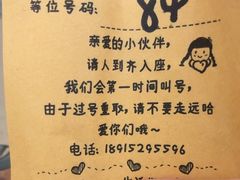 等位号码：84
亲爱的小伙伴，
请人到齐入座，
我们会第一时间叫号，
由于过号重取，请不要走远哈
爱你们哦~
电话：18915295596